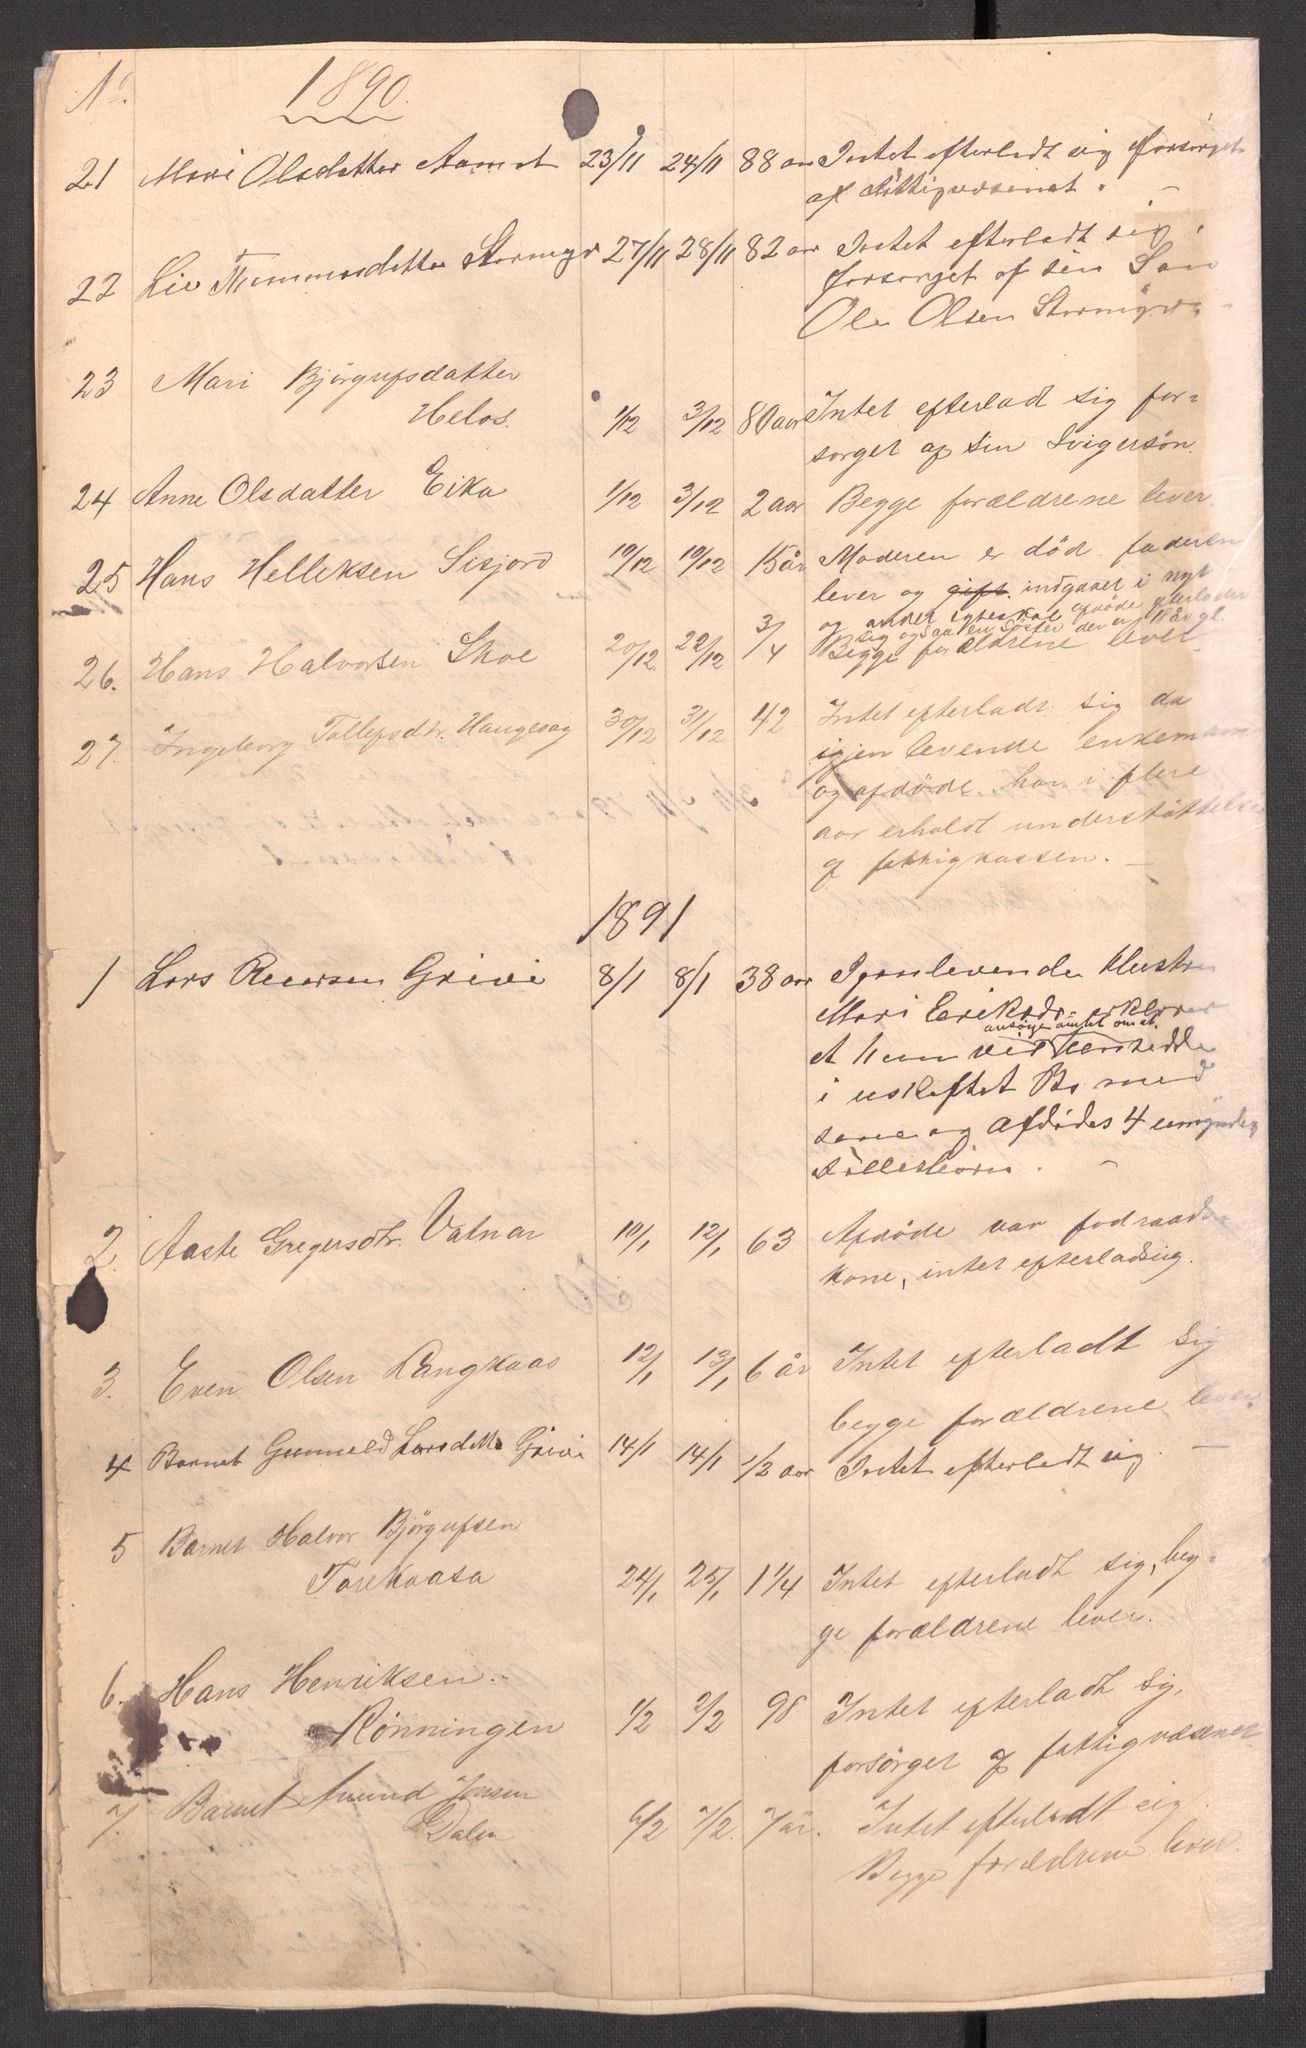 No. 1890.
21 Mari Olsdatter Aamot 23/11 24/11 88 aar Intet efterladt sig forsørget
af Fattigvæsenet. —
22 Liv Tummasdatter Stormyr 27/11 28/11 82 aar Intet efterladt sig,
forsørget af sin Søn
Ole Olsen Stormyr
23 Mari Bjørgufsdatter
Helos. 1/12 3/12 80 aar Intet efterlad sig for-
sørget af sin Svigersøn.
24 Anne Olsdatter Eika 1/12 3/12 2 aar Begge forældrene lever.
25 Hans Helleksen Sisjord 19/12 19/12 15 år Moderen er død faderen
lever og gift. indgaaet i nyt
og andet egteskab afdøde efterlader
sig ogsaa en Søster der er 18 år gl.
26. Hans Halvorsen Skoe 20/12. 22/12 3/4 Begge forældrene lever.
27. Ingeborg Tollefsdtr. Haugesag 30/12 31/12 42 Intet efterladt sig da
igjenlevende enkemann
og afdøde har i flere
aar erholdt understøttelse
af fattigkassen. —
1891
1 Lars Reiersen Grivi 8/1 8/1 38 aar Igjenlevende Hustru
Mari Eriksdr. erklærer
ansøge amtet om at
at hun vil hensidde
i uskiftet Bo med
sine og afdødes 4 umyndige
Fællesbørn. —
2. Aaste Gregersdtr. Vatnar 10/1 12/1 63 Afdøde var fødraads-
kone, intet efterladt sig.
3. Even Olsen Langkaas 12/1 13/1 6 år Intet efterladt sig
begge forældrene lever.
4 Barnet Gunnild Larsdatter Grivi 14/1 14/1 1/2 aar Intet efterladt sig. —
5 Barnet Halvor Bjørgufsen
Torekaasa 24/1 25/1 1 1/4 Intet efterladt sig, beg-
ge forældrene lever.
6. Hans Henriksen
Rønningen 1/2 2/2 98 Intet efterladt sig,
forsørget af fattigvæsenet.
7. Barnet Amund Jensen
Dalen 6/2 7/2. 7 år. Intet efterladt sig
Begge forældrene lever.